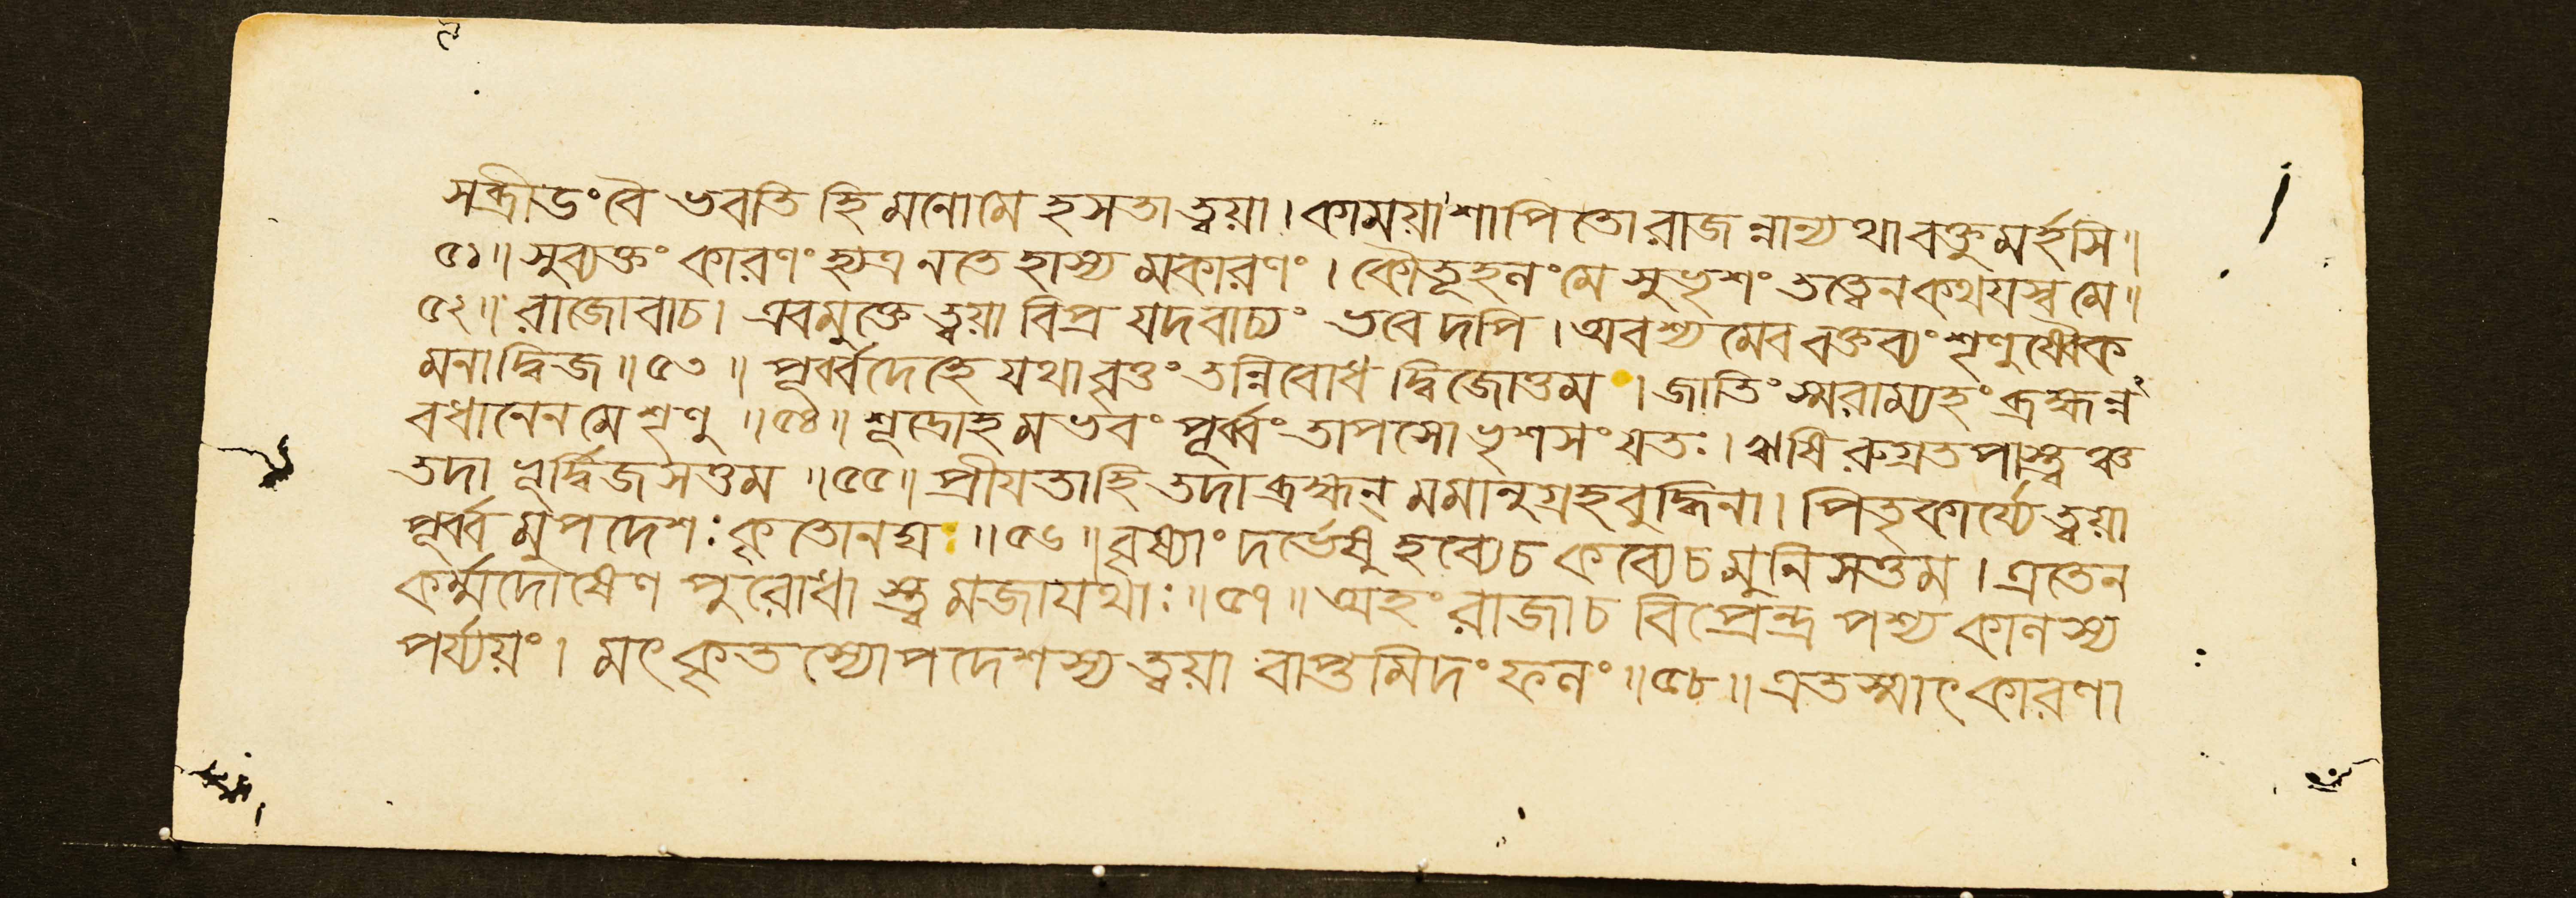 সব্রীডং বৈ ভবতি হি মনো মে হসতা ত্বয়া। কাময়া শাপিতো রাজ ন্নান্যথা বক্তু মর্হসি॥
৫১॥ সুব্যক্তং কারণং হ্যত্র ন তে হাস্য মকারণং। কৌতূহলং মে সুভৃশং তত্ত্বেন কথযস্ব মে॥
৫২॥ রাজোবাচ। এবমুক্তে ত্বয়া বিপ্র যদবাচ্যং ভবেদপি। অবশ্য মেব বক্তব্যং শৃণুষ্বৈক
মনা দ্বিজ॥ ৫৩॥ পূর্ব্বদেহে যথা বৃত্তং তন্নিবোধ দ্বিজোত্তম। জাতিং স্মরাম্যহং ব্রহ্মন্ন
বধানেন মে শৃণু॥ ৫৪॥ শূদ্রোহ মভবং পূর্ব্বং তাপসো ভৃশসংযতঃ। ঋষি রুগ্রতপাস্ত্বঞ্চ
তদা ভূর্দ্বিজসত্তম॥ ৫৫॥ প্রীযতা হি তদা ব্রহ্মন্ মমানুগ্রহবুদ্ধিনা। পিতৃকার্য্যে ত্বয়া
পূর্ব্ব মুপদেশঃ কৃতোনঘ॥ ৫৬॥ বৃষ্যাং দর্ভেষু হব্যে চ কব্যে চ মুনিসত্তম। এতেন
কর্ম্মদোষেণ পুরোধা স্ত্ব মজাযথাঃ॥ ৫৭॥ অহং রাজা চ বিপ্রেন্দ্র পশ্য কালস্য
পর্য্যয়ং। মৎকৃতস্যোপদেশস্য ত্বয়া বাপ্ত মিদং ফলং॥ ৫৮॥ এতস্মাৎ কারণা